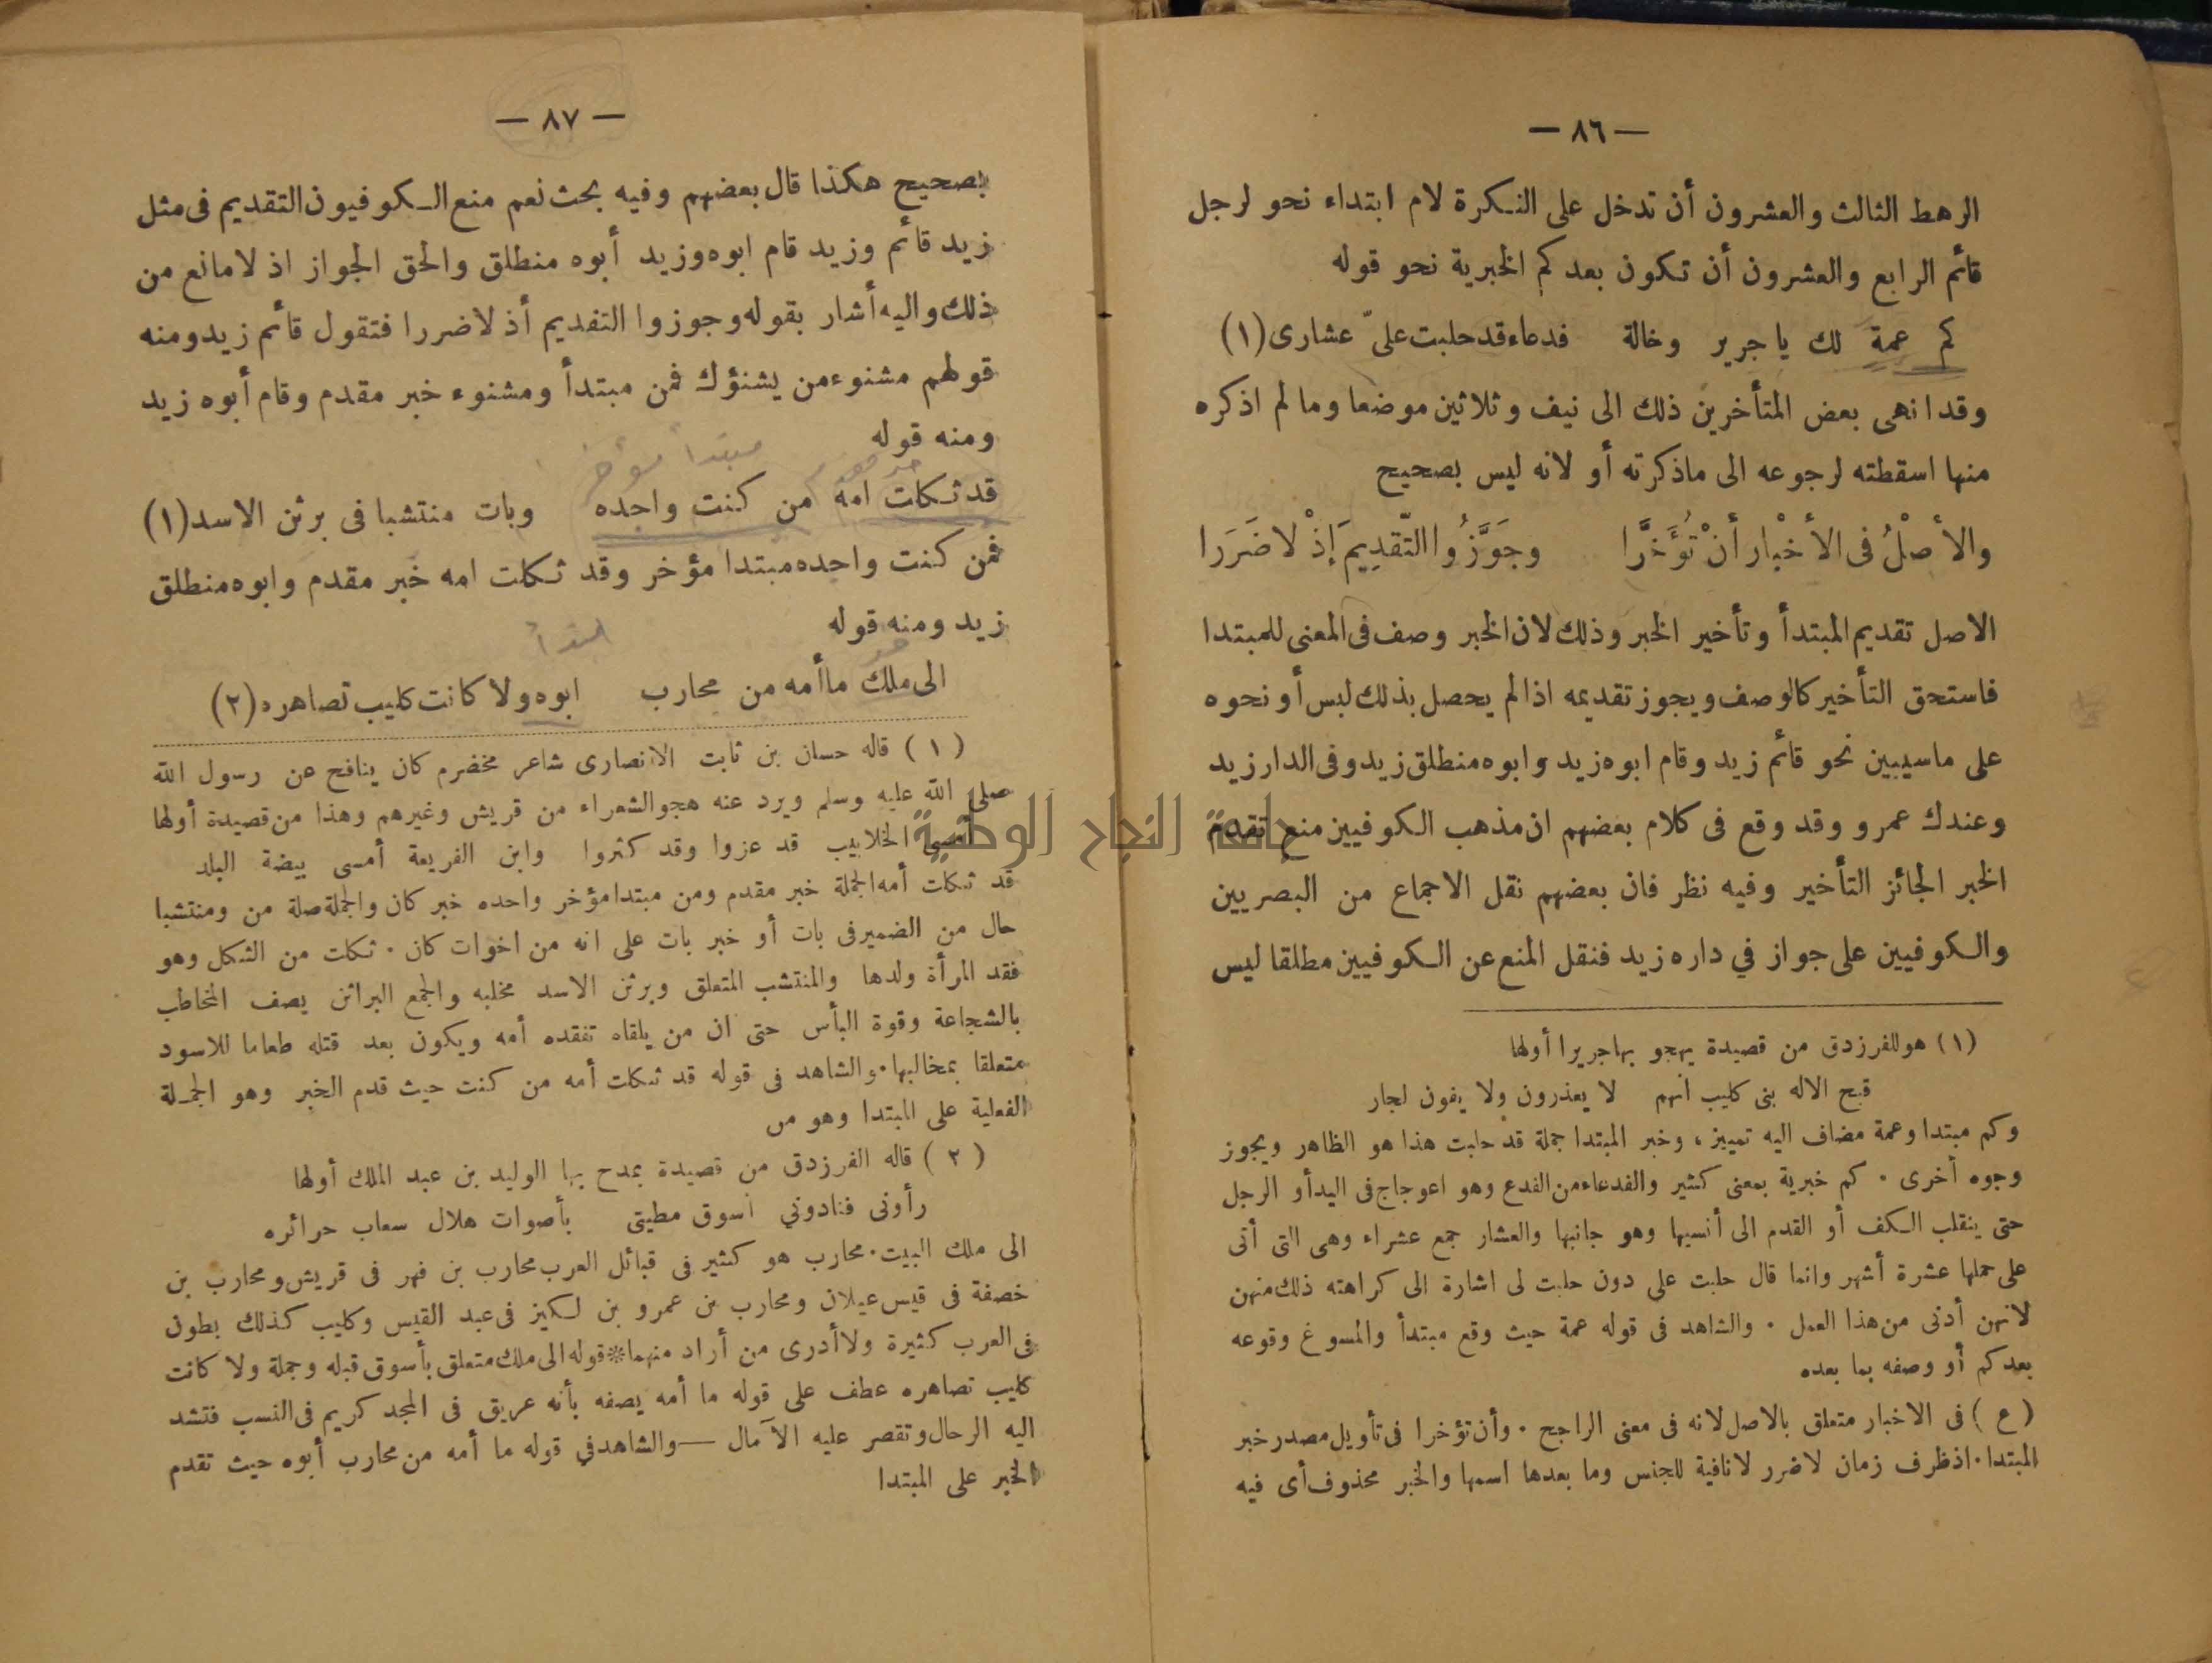 — ٨٦ —
الرهط الثالث والعشرون أن تدخل على النكرة لام ابتداء نحو لرجل
قائم الرابع والعشرون أن تكون بعد كم الخبرية نحو قوله
كم عمة لك يا جرير وخالة فدعاء قد حلبت علىّ عشارى (١)
وقد انهى بعض المتأخرين ذلك الى نيف وثلاثين موضعا وما لم اذكره
منها اسقطته لرجوعه الى ماذكرته أو لانه ليس بصحيح
والأصْلُ فى الأخْبار أنْ تُؤَخَّرا وجَوَّزُوا التّقدِيمَ إذْ لا ضَرَرا
الاصل تقديم المبتدأ وتأخير الخبر وذلك لان الخبر وصف فى المعنى للمبتدا
فاستحق التأخير كالوصف ويجوز تقديمه اذا لم يحصل بذلك لبس أو نحوه
على ماسيبين نحو قائم زيد وقام ابوه زيد وابوه منطلق زيد وفى الدار زيد
وعندك عمرو وقد وقع فى كلام بعضهم ان مذهب الكوفيين منع تقدم
الخبر الجائز التأخير وفيه نظر فان بعضهم نقل الاجماع من البصريين
والكوفيين على جواز في داره زيد فنقل المنع عن الكوفيين مطلقا ليس
(١) هو للفرزدق من قصيدة يهجو بها جريرا أولها
قبح الاله بنى كليب انهم لا يعذرون ولا يفون لجار
وكم مبتدا وعمة مضاف اليه تمييز، وخبر المبتدا جملة قد حلبت هذا هو الظاهر ويجوز
وجوه أخرى . كم خبرية بمعنى كثير والفدعاء من الفدع وهو اعوجاج فى اليد أو الرجل
حتى ينقلب الكف أو القدم الى أنسيها وهو جانبها والعشار جمع عشراء وهى التى أتى
على حملها عشرة أشهر وانما قال حلبت على دون حلبت لى اشارة الى كراهته ذلك منهن
لانهن أدنى من هذا العمل . والشاهد فى قوله عمة حيث وقع مبتدأ والمسوغ وقوعه
بعد كم أو وصفه بما بعده
(ع) فى الاخبار متعلق بالاصل لانه فى معنى الراجح . وأن تؤخرا فى تأويل مصدر خبر
المبتدا . اذ ظرف زمان لا ضرر لا نافية للجنس وما بعدها اسمها والخبر محذوف أى فيه
— ٨٧ —
بصحيح هكذا قال بعضهم وفيه بحث نعم منع الكوفيون التقديم فى مثل
زيد قائم وزيد قام ابوه وزيد أبوه منطلق والحق الجواز اذ لا مانع من
ذلك واليه أشار بقوله وجوزوا التقديم أذ لا ضررا فتقول قائم زيد ومنه
قولهم مشنوء من يشنؤك فمن مبتدأ ومشنوء خبر مقدم وقام أبوه زيد
ومنه قوله
مبتدأ مؤخر
قد ثكلت امه من كنت واحده وبات منتشبا فى برثن الاسد (١)
فمن كنت واحده مبتدا مؤخر وقد ثكلت امه خبر مقدم وابوه منطلق
زيد ومنه قوله
الى ملك ما أمه من محارب ابوه ولا كانت كليب تصاهره (٢)
(١) قاله حسان بن ثابت الانصارى شاعر مخضرم كان ينافح عن رسول الله
صلى الله عليه وسلم ويرد عنه هجو الشعراء من قريش وغيرهم وهذا من قصيدة أولها
الخلابيب قد عزوا وقد كثروا وابن الفريعة أمسى بيضة البلد
قد ثكلت أمه الجملة خبر مقدم ومن مبتدا مؤخر واحده خبر كان والجملة صلة من ومنتشبا
حال من الضمير فى بات أو خبر بات على انه من اخوات كان . ثكلت من الثكل وهو
فقد المرأة ولدها والمنتشب المتعلق وبرثن الاسد مخلبه والجمع البراثن يصف المخاطب
بالشجاعة وقوة البأس حتى ان من يلقاه تفقده أمه ويكون بعد قتله طعاما للاسود
متعلقا بمخالبها . والشاهد فى قوله قد ثكلت أمه من كنت حيث قدم الخبر وهو الجملة
الفعلية على المبتدا وهو من
(٢) قاله الفرزدق من قصيدة يمدح بها الوليد بن عبد الملك أولها
رأونى فنادوني أسوق مطيتى بأصوات هلال سعاب حرائره
الى ملك البيت . محارب هو كثير فى قبائل العرب محارب بن فهر فى قريش ومحارب بن
خصفة فى قيس عيلان ومحارب بن عمرو بن لكيز فى عبد القيس وكليب كذلك بطون
فى العرب كثيرة ولا أدرى من أراد منهما * قوله الى ملك متعلق بأسوق قبله وجملة ولا كانت
كليب تصاهره عطف على قوله ما أمه يصفه بأنه عريق فى المجد كريم فى النسب فتشد
اليه الرحال وتقصر عليه الآمال — والشاهد في قوله ما أمه من محارب أبوه حيث تقدم
الخبر على المبتدا
جامعة النجاح الوطنية